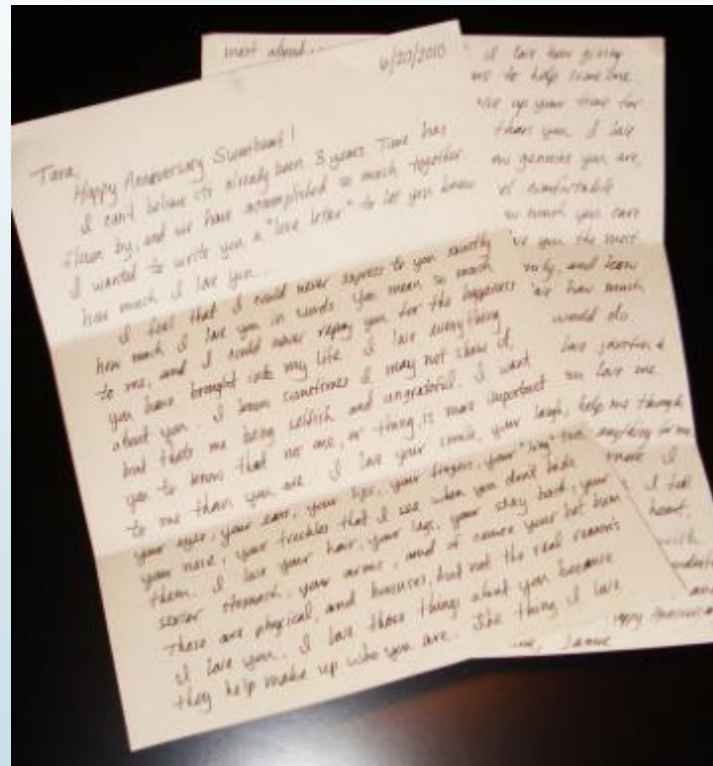 6/20/2010
Tara,
Happy Anniversary Sweetheart!
I can't believe it's already been 3 years. Time has
flown by, and we have accomplished so much together
I wanted to write you a "love letter" to let you know
how much I love you...
I feel that I could never express to you exactly
how much I love you in words. You mean so much
to me, and I could never repay you for the happiness
you have brought into my life. I love everything
about you. I know sometimes I may not show it,
but thats me being selfish and ungrateful. I want
you to know that no one, or thing, is more important
to me than you are. I love your smile, your laugh,
your eyes, your ears, your lips, your fingers, your "long" toes
your nose, your freckles that I see when you don't hide
them. I love your hair, your legs, your sexy back, your
sexier stomach, your arms, and of course your hot bum
These are physical, and bonuses, but not the real reasons
I love you. I love those things about you because
they help make up who you are. The thing I love
most about
I love how giving
to help someone
give up your time for
than you. I love
how genuine you are,
comfortable
how much you care
you the most
and know
how much
would do
love
love me
help me through
anything for me
I
I feel
heart,
with
and
Happy Anniversary
Jamie